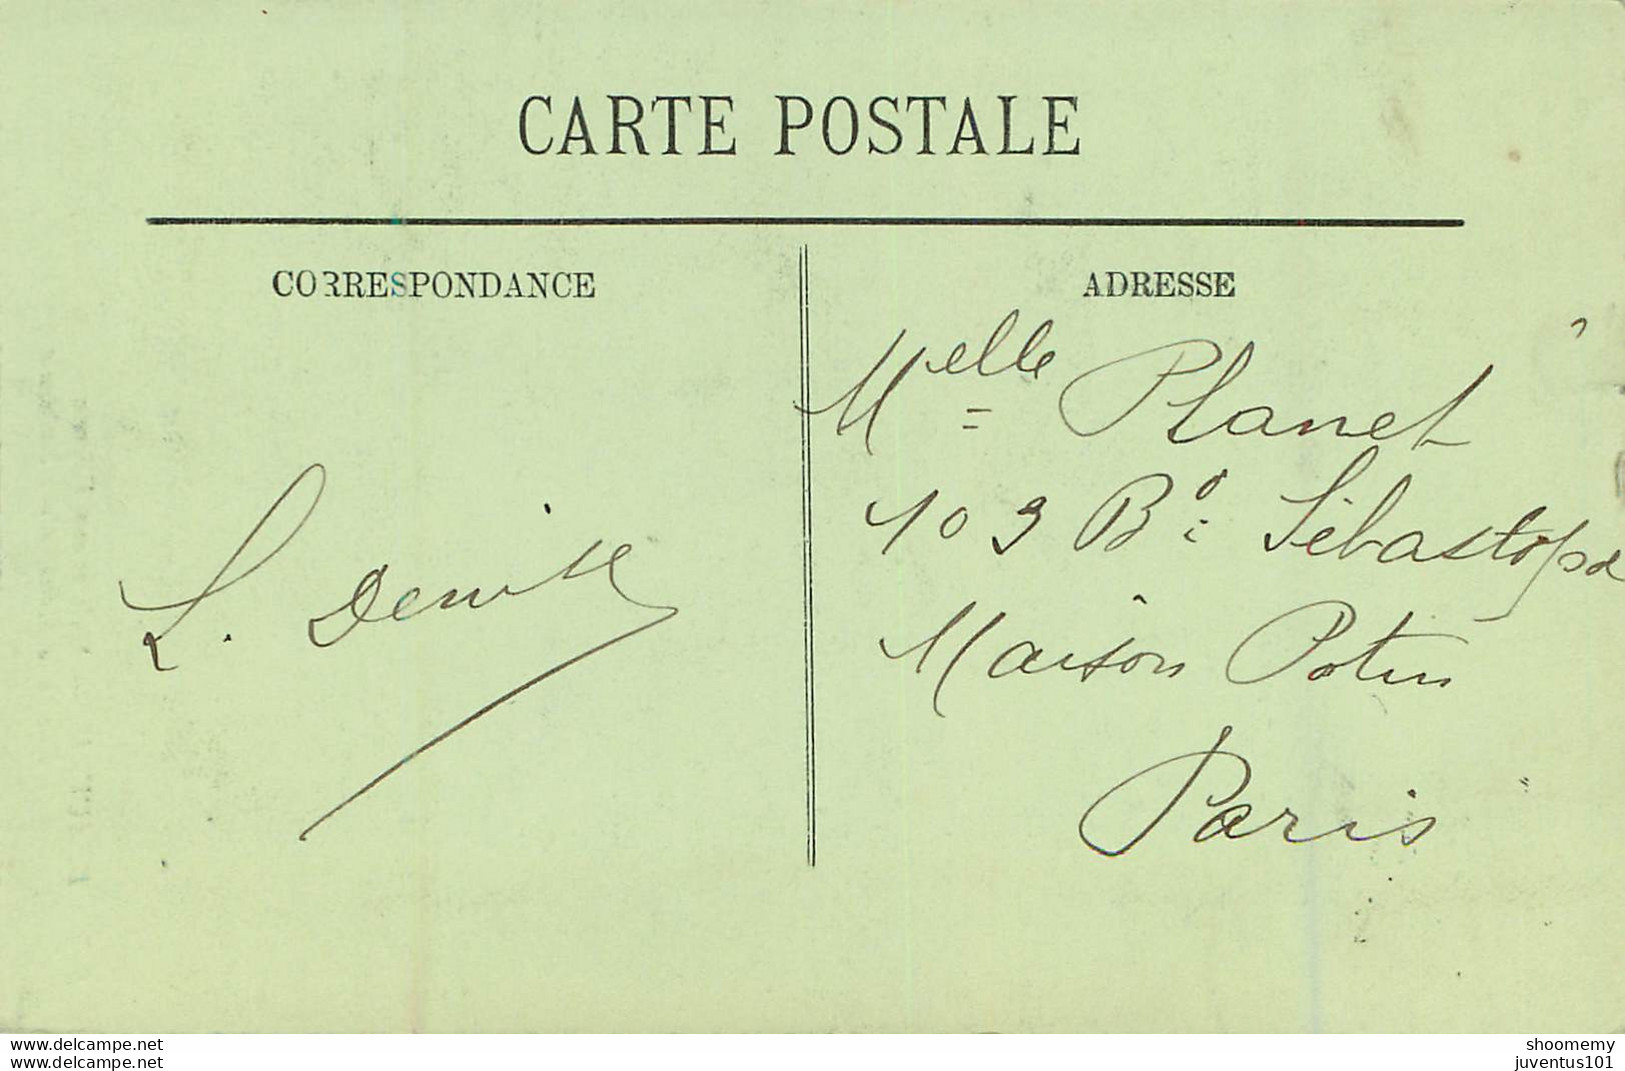 CARTE POSTALE
CORRESPONDANCE
ADRESSE
Melle Planet
103 Bd: Sébastopol
Maison Potin
Paris
L. Denise
www.delcampe.net
www.delcampe.net
shoomemy
juventus101